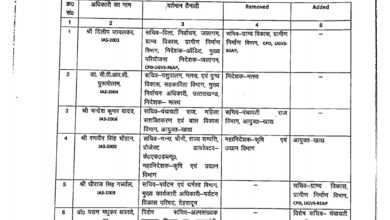 क्र0 सं0 अधिकारी का नाम वर्तमान तैनाती Removed Added
1 2 3 4 5
1 श्री दिलीप जावलकर, सचिव-वित्त, निर्वाचन, जलागम, सचिव-ग्राम्य विकास, ग्रामीण —
IAS-2003 ग्राम्य विकास, ग्रामीण निर्माण निर्माण विभाग, CPD, UGVS-
विभाग, निदेशक-ऑडिट, मुख्य REAP,
परियोजना निदेशक-जलागम,
CPD-UGVS-REAP,
2 डा. वी.वी.आर.सी. सचिव-पशुपालन, मत्स्य, एवं दुग्ध निदेशक-मत्स्य —
पुरूषोत्तम, विकास, सहकारिता विभाग, मुख्य
IAS-2004 निर्वाचन अधिकारी, उत्तराखण्ड,
निदेशक-मत्स्य
3 श्री चन्द्रेश कुमार यादव, सचिव-पंचायती राज, महिला सचिव-पंचायती राज —
IAS-2006 सशक्तिकरण एवं बाल विकास विभाग, आयुक्त-खाद्य
विभाग, आयुक्त-खाद्य
4 श्री रणवीर सिंह चौहान, सचिव-गन्ना, चीनी, राज्य सम्पत्ति, महानिदेशक-कृषि एवं आयुक्त-खाद्य
IAS-2009 प्रोजेक्ट डायरेक्टर- उद्यान विभाग
महानिदेशक-कृषि एवं उद्यान
विभाग
5 श्री धीराज सिंह गर्ब्याल, सचिव-पर्यटन एवं धर्मस्व विभाग, — सचिव-ग्राम्य विकास,
IAS-2009 मुख्य कार्यकारी अधिकारी-पर्यटन ग्रामीण निर्माण विभाग,
विकास परिषद, देहरादून CPD, UGVS-REAP
6 डॉ0 पराग मधुकर धकाते, विशेष सचिव-अल्पसंख्यक — विशेष सचिव-पंचायती